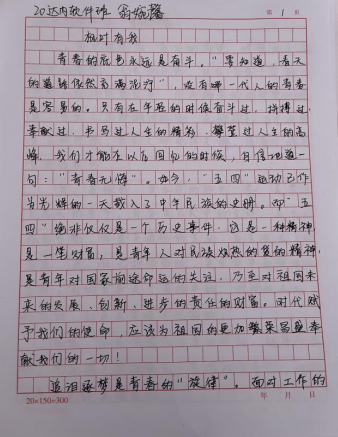 20达内软件班 翁婉馨
第 1 页
相对有我
青春的底色永远是奋斗。"要知道，春天
的道路依然充满泥泞"，没有哪一代人的青春
是容易的。只有在年轻的时候奋斗过，拼搏过，
奉献过，书写过人生的精彩，攀登过人生的高
峰，我们才能在以后回忆的时候，自信地道一
句："青春无悔"。如今，"五四"运动已作
为光辉的一天载入了中华民族的史册。却"五
四"绝非仅仅是一个历史事件，它是一种精神，
是一笔财富，是青年人对民族炽热的爱的精神，
是青年对国家前途命运的关注，乃至对祖国未
来的发展、创新、进步的责任的财富。时代赋
予我们的使命，应该为祖国的更加繁荣昌盛奉
献我们的一切！
追泪逐梦是青春的"旋律"。面对工作的
20×150=300
年 月 日